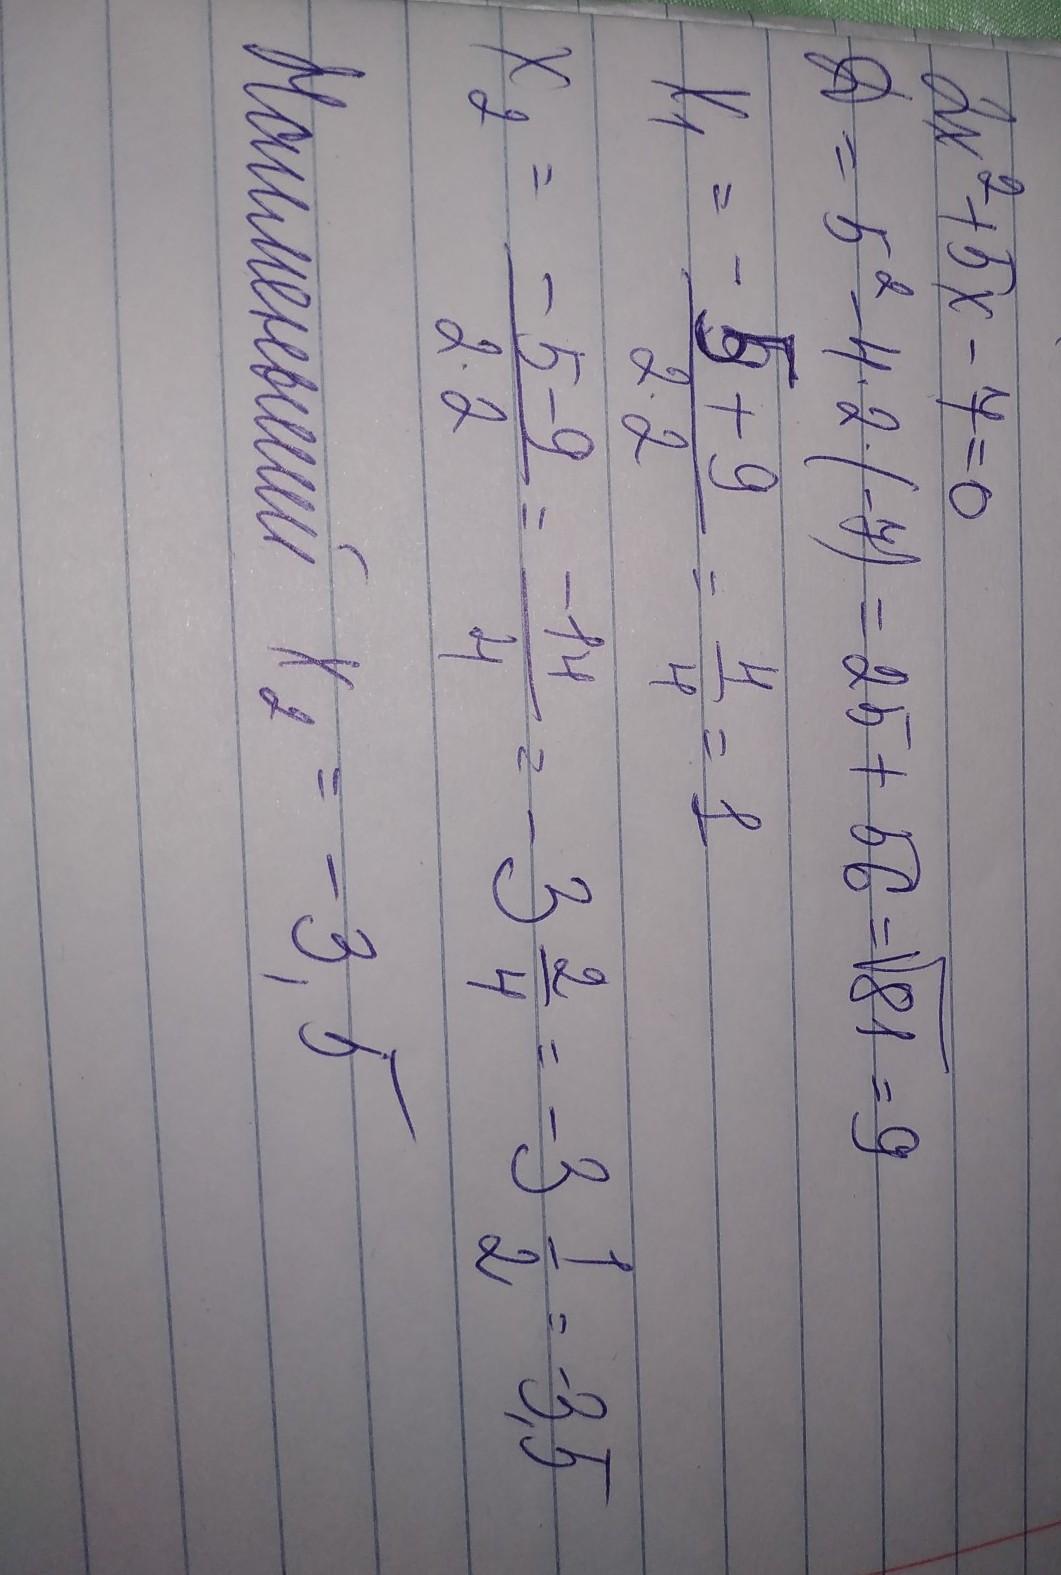 2x²+5x-7=0
D=5²-4·2·(-7)=25+56=√81=9
x₁ = (-5+9)/(2·2) = 4/4 = 1
x₂ = (-5-9)/(2·2) = -14/4 = -3 2/4 = -3 1/2 = -3,5
Наименьший x₂ = -3,5